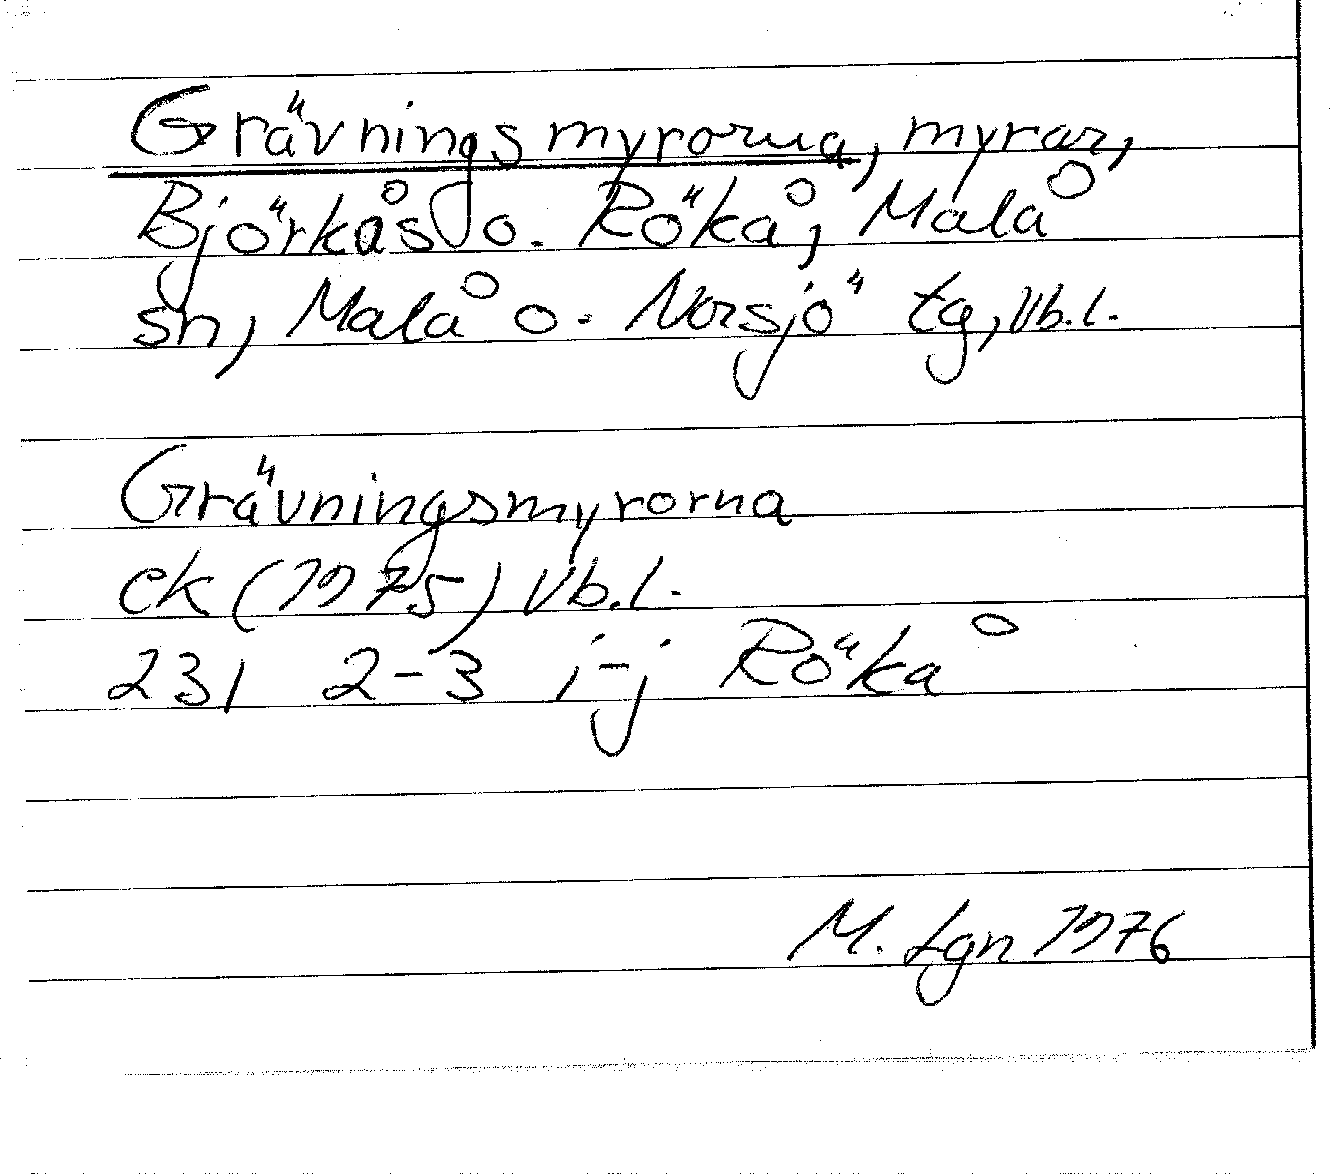 Grävningsmyrorna, myrar,
Björkås o. Rökå, Malå
sn, Malå o. Norsjö tg, Vb.l.
Grävningsmyrorna
ek (1975) Vb.l.
23I 2-3 i-j Rökå
M. Lgn 1976